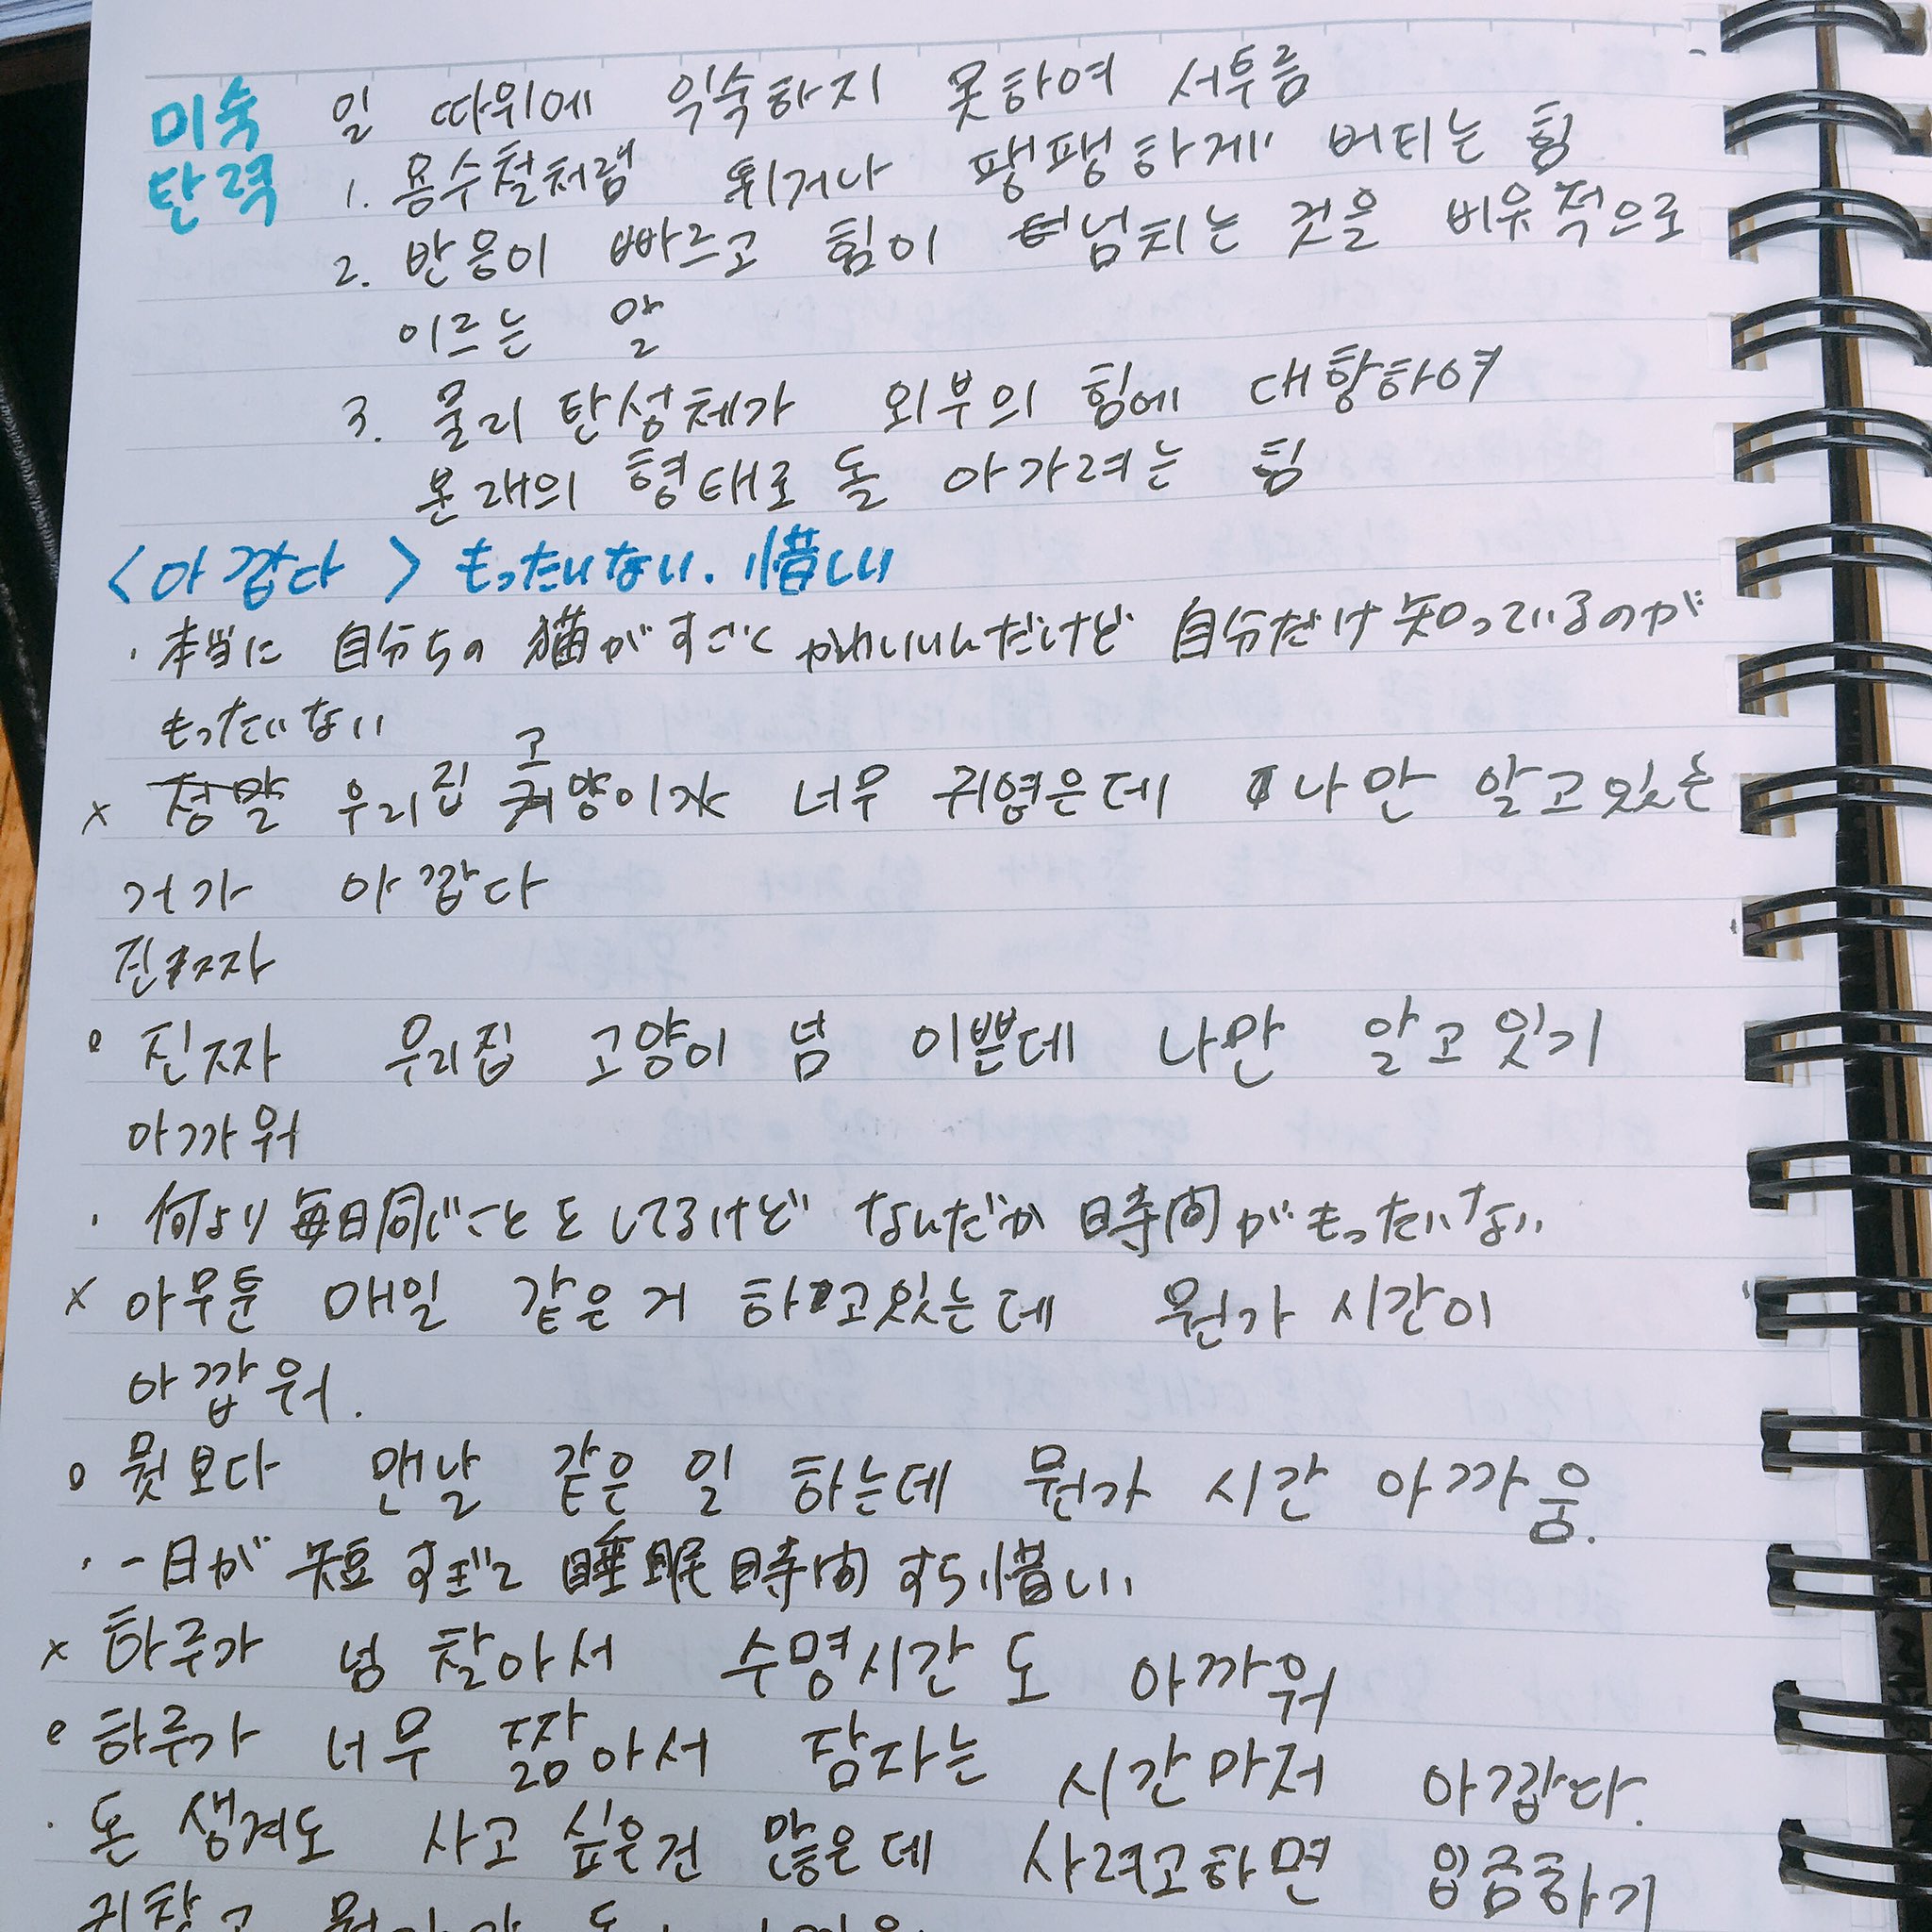 미숙 일 따위에 익숙하지 못하여 서투름
탄력 1. 용수철처럼 튀거나 팽팽하게 버티는 힘
2. 반응이 빠르고 힘이 넘치는 것을 비유적으로
이르는 말
3. 물리 탄성체가 외부의 힘에 대항하여
본래의 형태로 돌아가려는 힘
<아깝다> もったいない. 惜しい
・本当に 自分ちの 猫がすごく かわいいんだけど 自分だけ知っているのが
もったいない
고
x 정말 우리집 양이가 너무 귀영은데 나만 알고있는
거가 아깝다
진짜
o 진짜 우리집 고양이 넘 이쁜데 나만 알고 잇기
아까워
・何より毎日同じことをしてるけど なんだか 時間がもったいない
x 아무툰 매일 같은 거 하고있는데 뭔가 시간이
아깝워.
o 뭣보다 맨날 같은 일 하는데 뭔가 시간 아까움.
・一日が 短すぎて 睡眠時間すら惜しい
x 하루가 넘 찰아서 수명시간도 아까워
o 하루가 너무 짧아서 잠자는 시간마저 아깝다.
・돈 생겨도 사고 싶은건 많은데 사려고하면 입금하기
귀찮고 뭔가